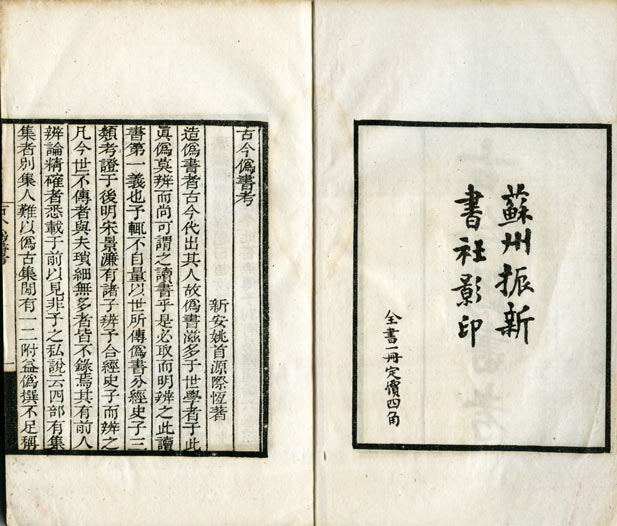 蘇州振新
書社影印
全書一冊定價四角
古今僞書考
新安姚首源際恆著
造僞書者古今代出其人故僞書滋多于世學者于此
眞僞莫辨而尚可謂之讀書乎是必取而明辨之此讀
書第一義也予輒不自量以世所傳僞書分經史子三
類考證于後明宋景濂有諸子辨予合經史子而辨之
凡今世不傳者與夫瑣細無多者皆不錄焉其有前人
辨論精確者悉載于前以見非予之私說云四部有集
集者別集人難以僞古集閒有一二附益僞撰不足稱
古今僞書考
一